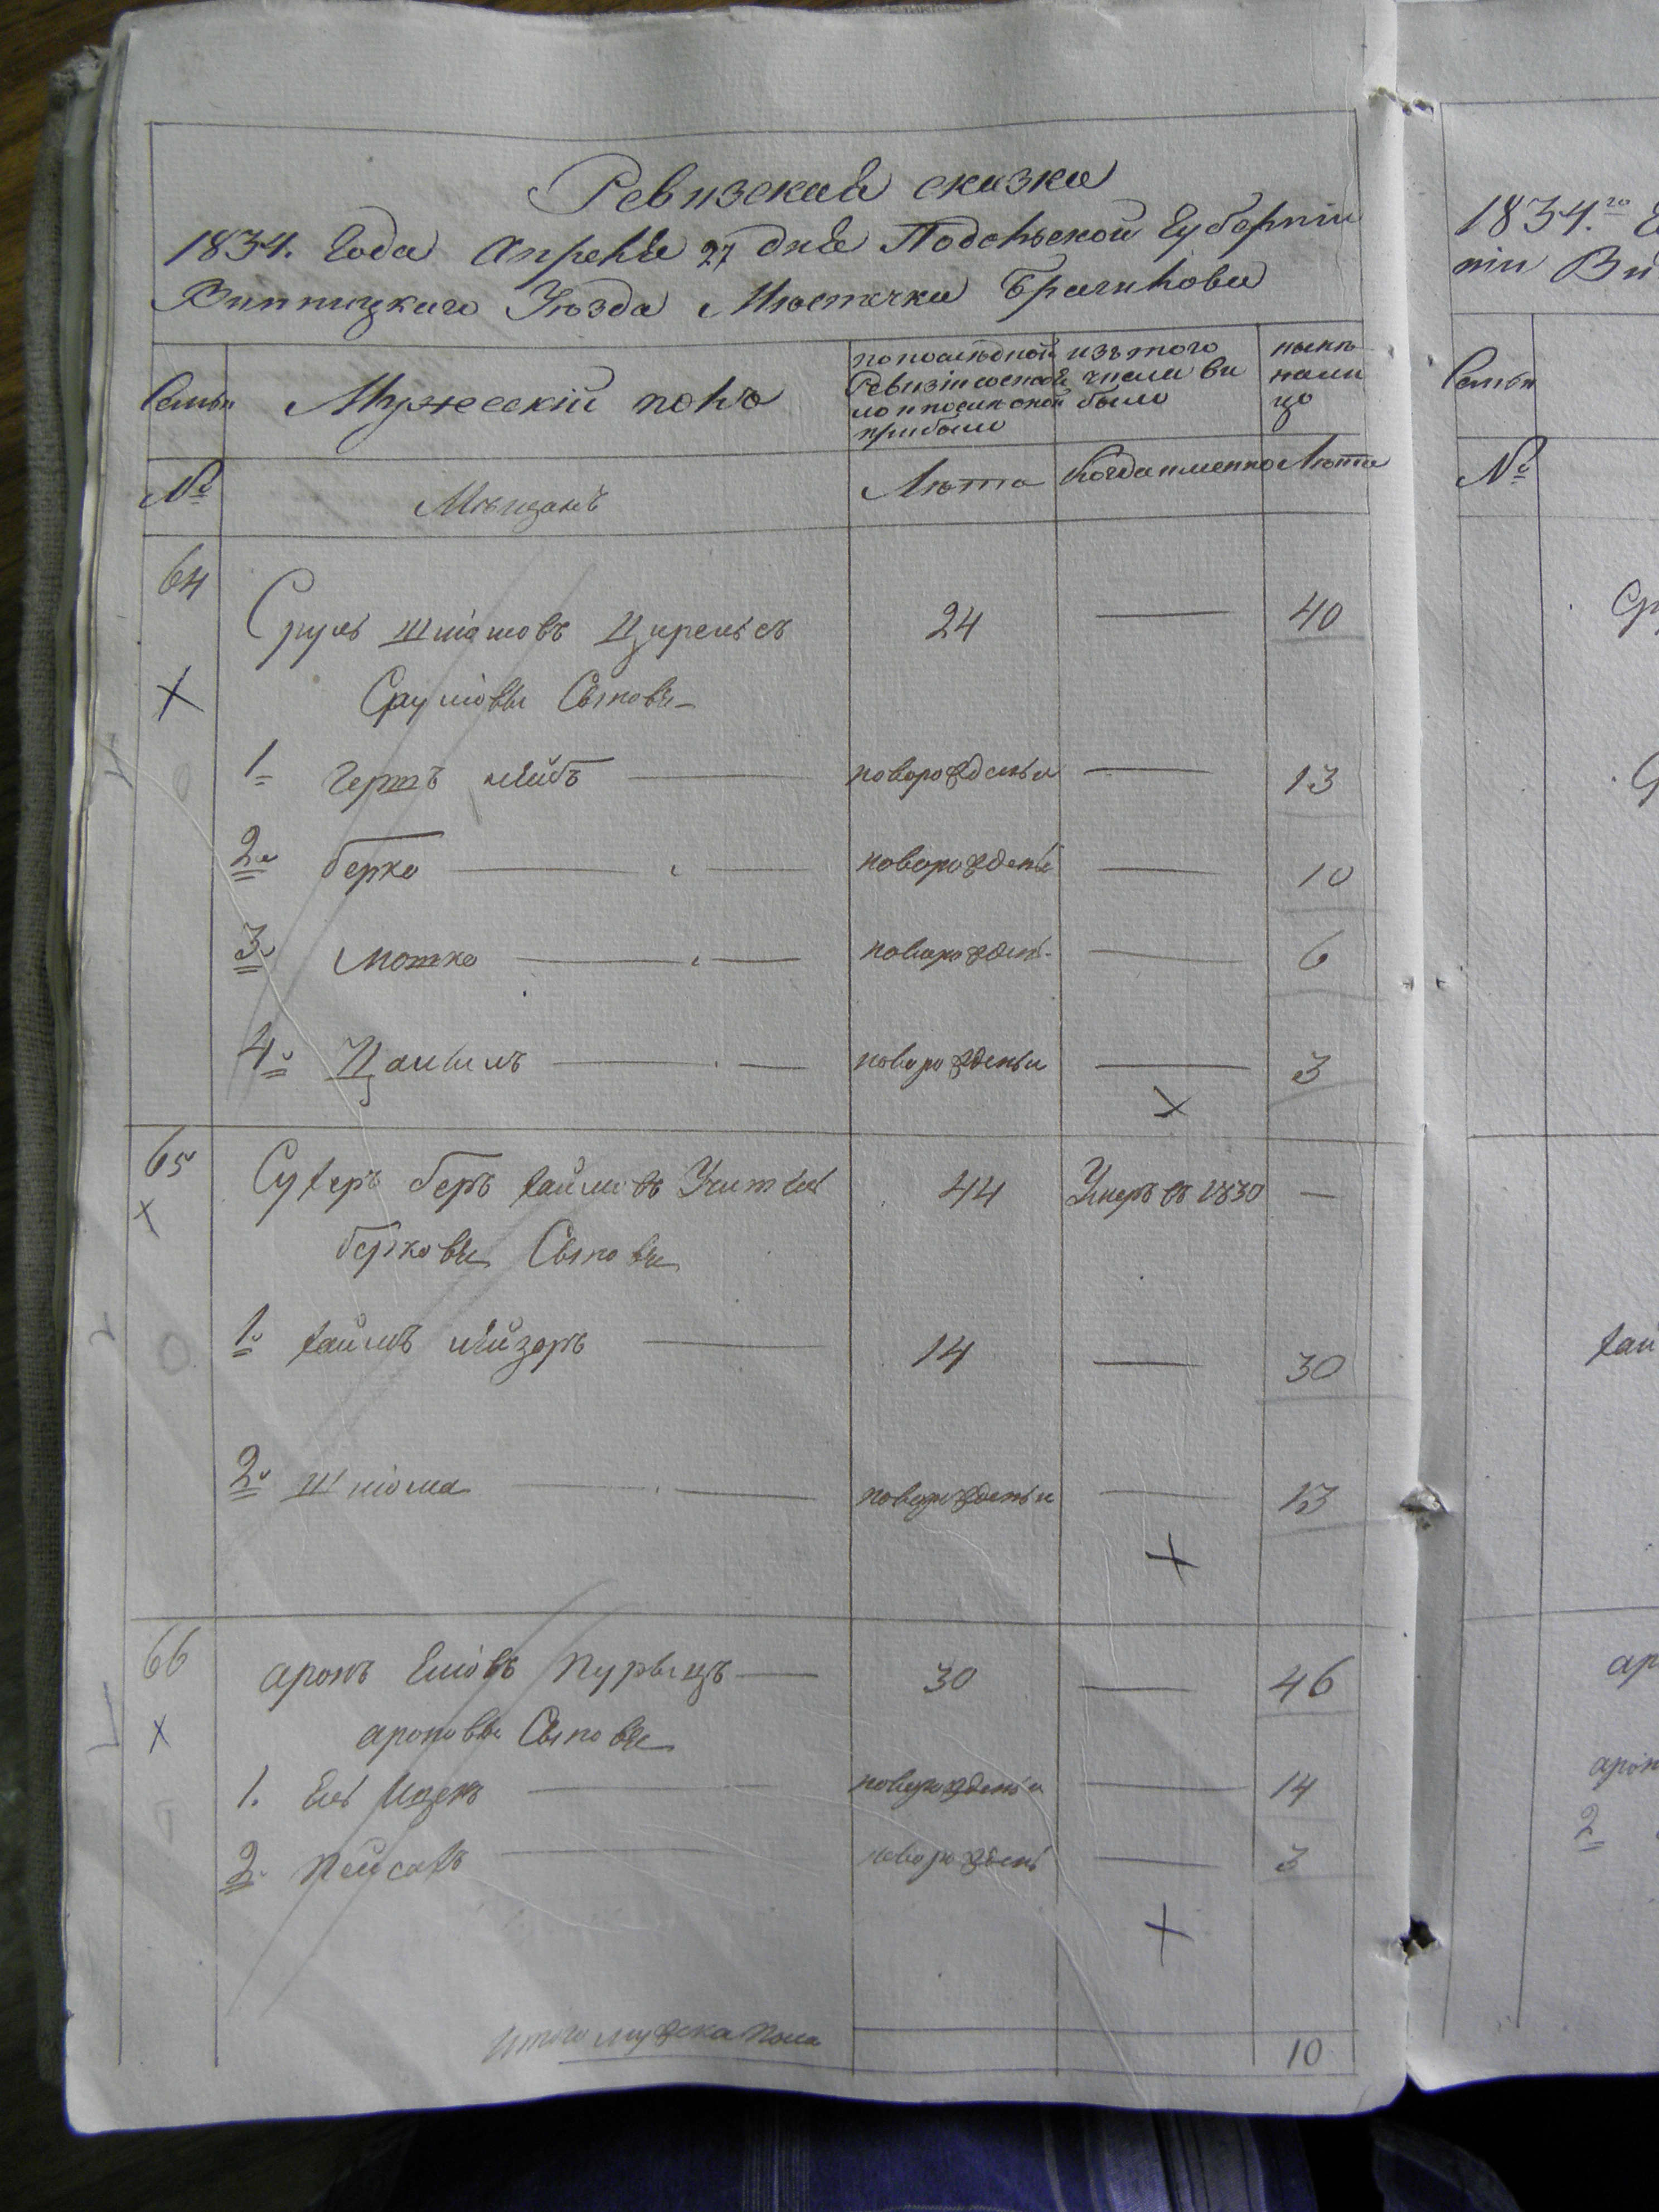 Ревизская сказка
1834. Года Апреля 27 дня Подольской Губернiи
Винницкаго Уѣзда Мѣстечка Браилова
Семьи
Мужескiй полъ
по последной
Ревизiи состоя
ло и после оной
прибыло
изъ того
числа вы
было
нынѣ
нали
цо
№
Мѣщанъ
Лѣта
Когда именно
Лѣта
64
Сруль Шлiомовъ Цирельсъ
24
40
Срулiовы Сыновя
1 Гершъ лейбъ
новорожденъи
13
2й берко
новорожденъ
10
3й Мошко
новорожден
6
4й Цалъ
новорожденъи
3
65
Сухеръ беръ хаимовъ
44
Умеръ въ 1830
берковы Сыновя
1й хаимъ лейзеръ
14
30
2й Шлiома
новорожденъи
13
66
аронъ Елiовъ Пурыцъ
30
46
ароновы Сыновя
1. Ель Ицекъ
новорожденъи
14
2й Пейсахъ
новорожденъ
3
Итого мужеска пола
10
1834.го
нiи Ви
Семьи
№
Ср
хаи
ар
арон
2